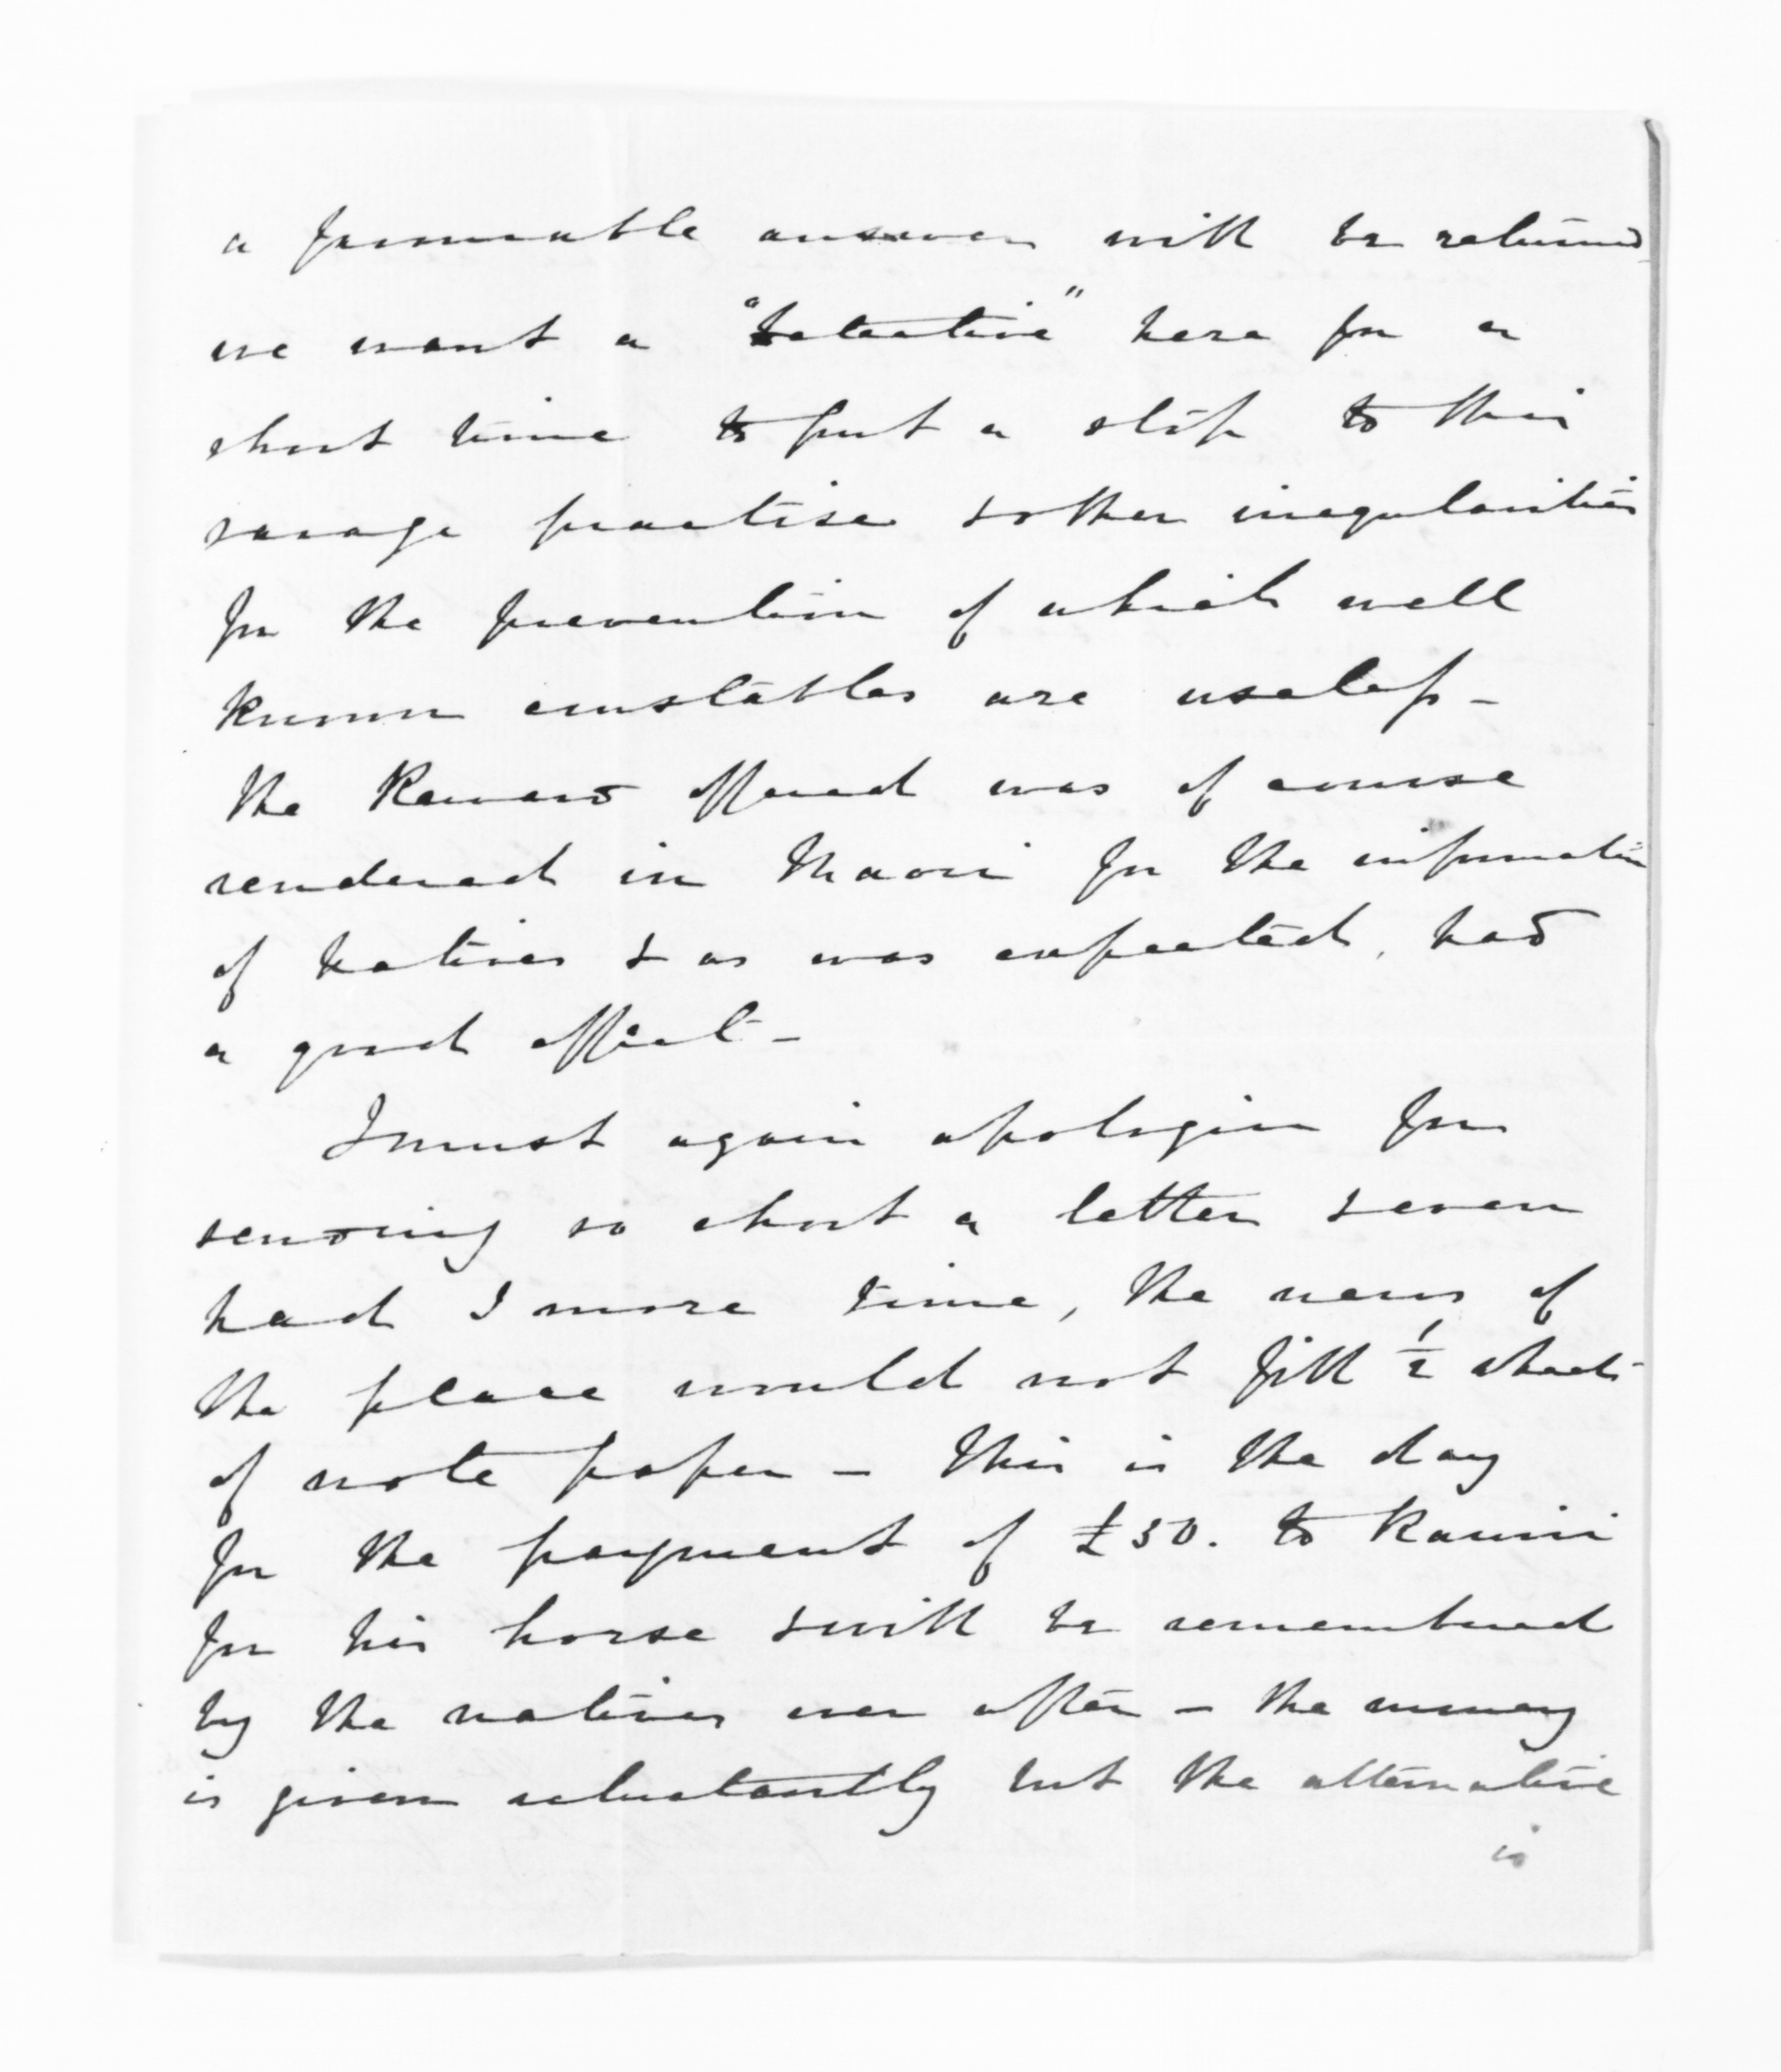 a favourable answer will be returned
we want a "detective" here for a
short time to put a stop to this
savage practise & other irregularities
for the prevention of which well
known constables are useless -
The Reward offered was of course
rendered in Maori for the information
of Natives & as was expected, had
a good effect -
I must again apologise for
sending so short a letter & even
had I more time, the news of
the place would not fill ½ sheet
of note paper - This is the day
for the payment of £50. to
for his horse & will be remembered
by the natives ever after - the money
is given reluctantly but the alternative
is